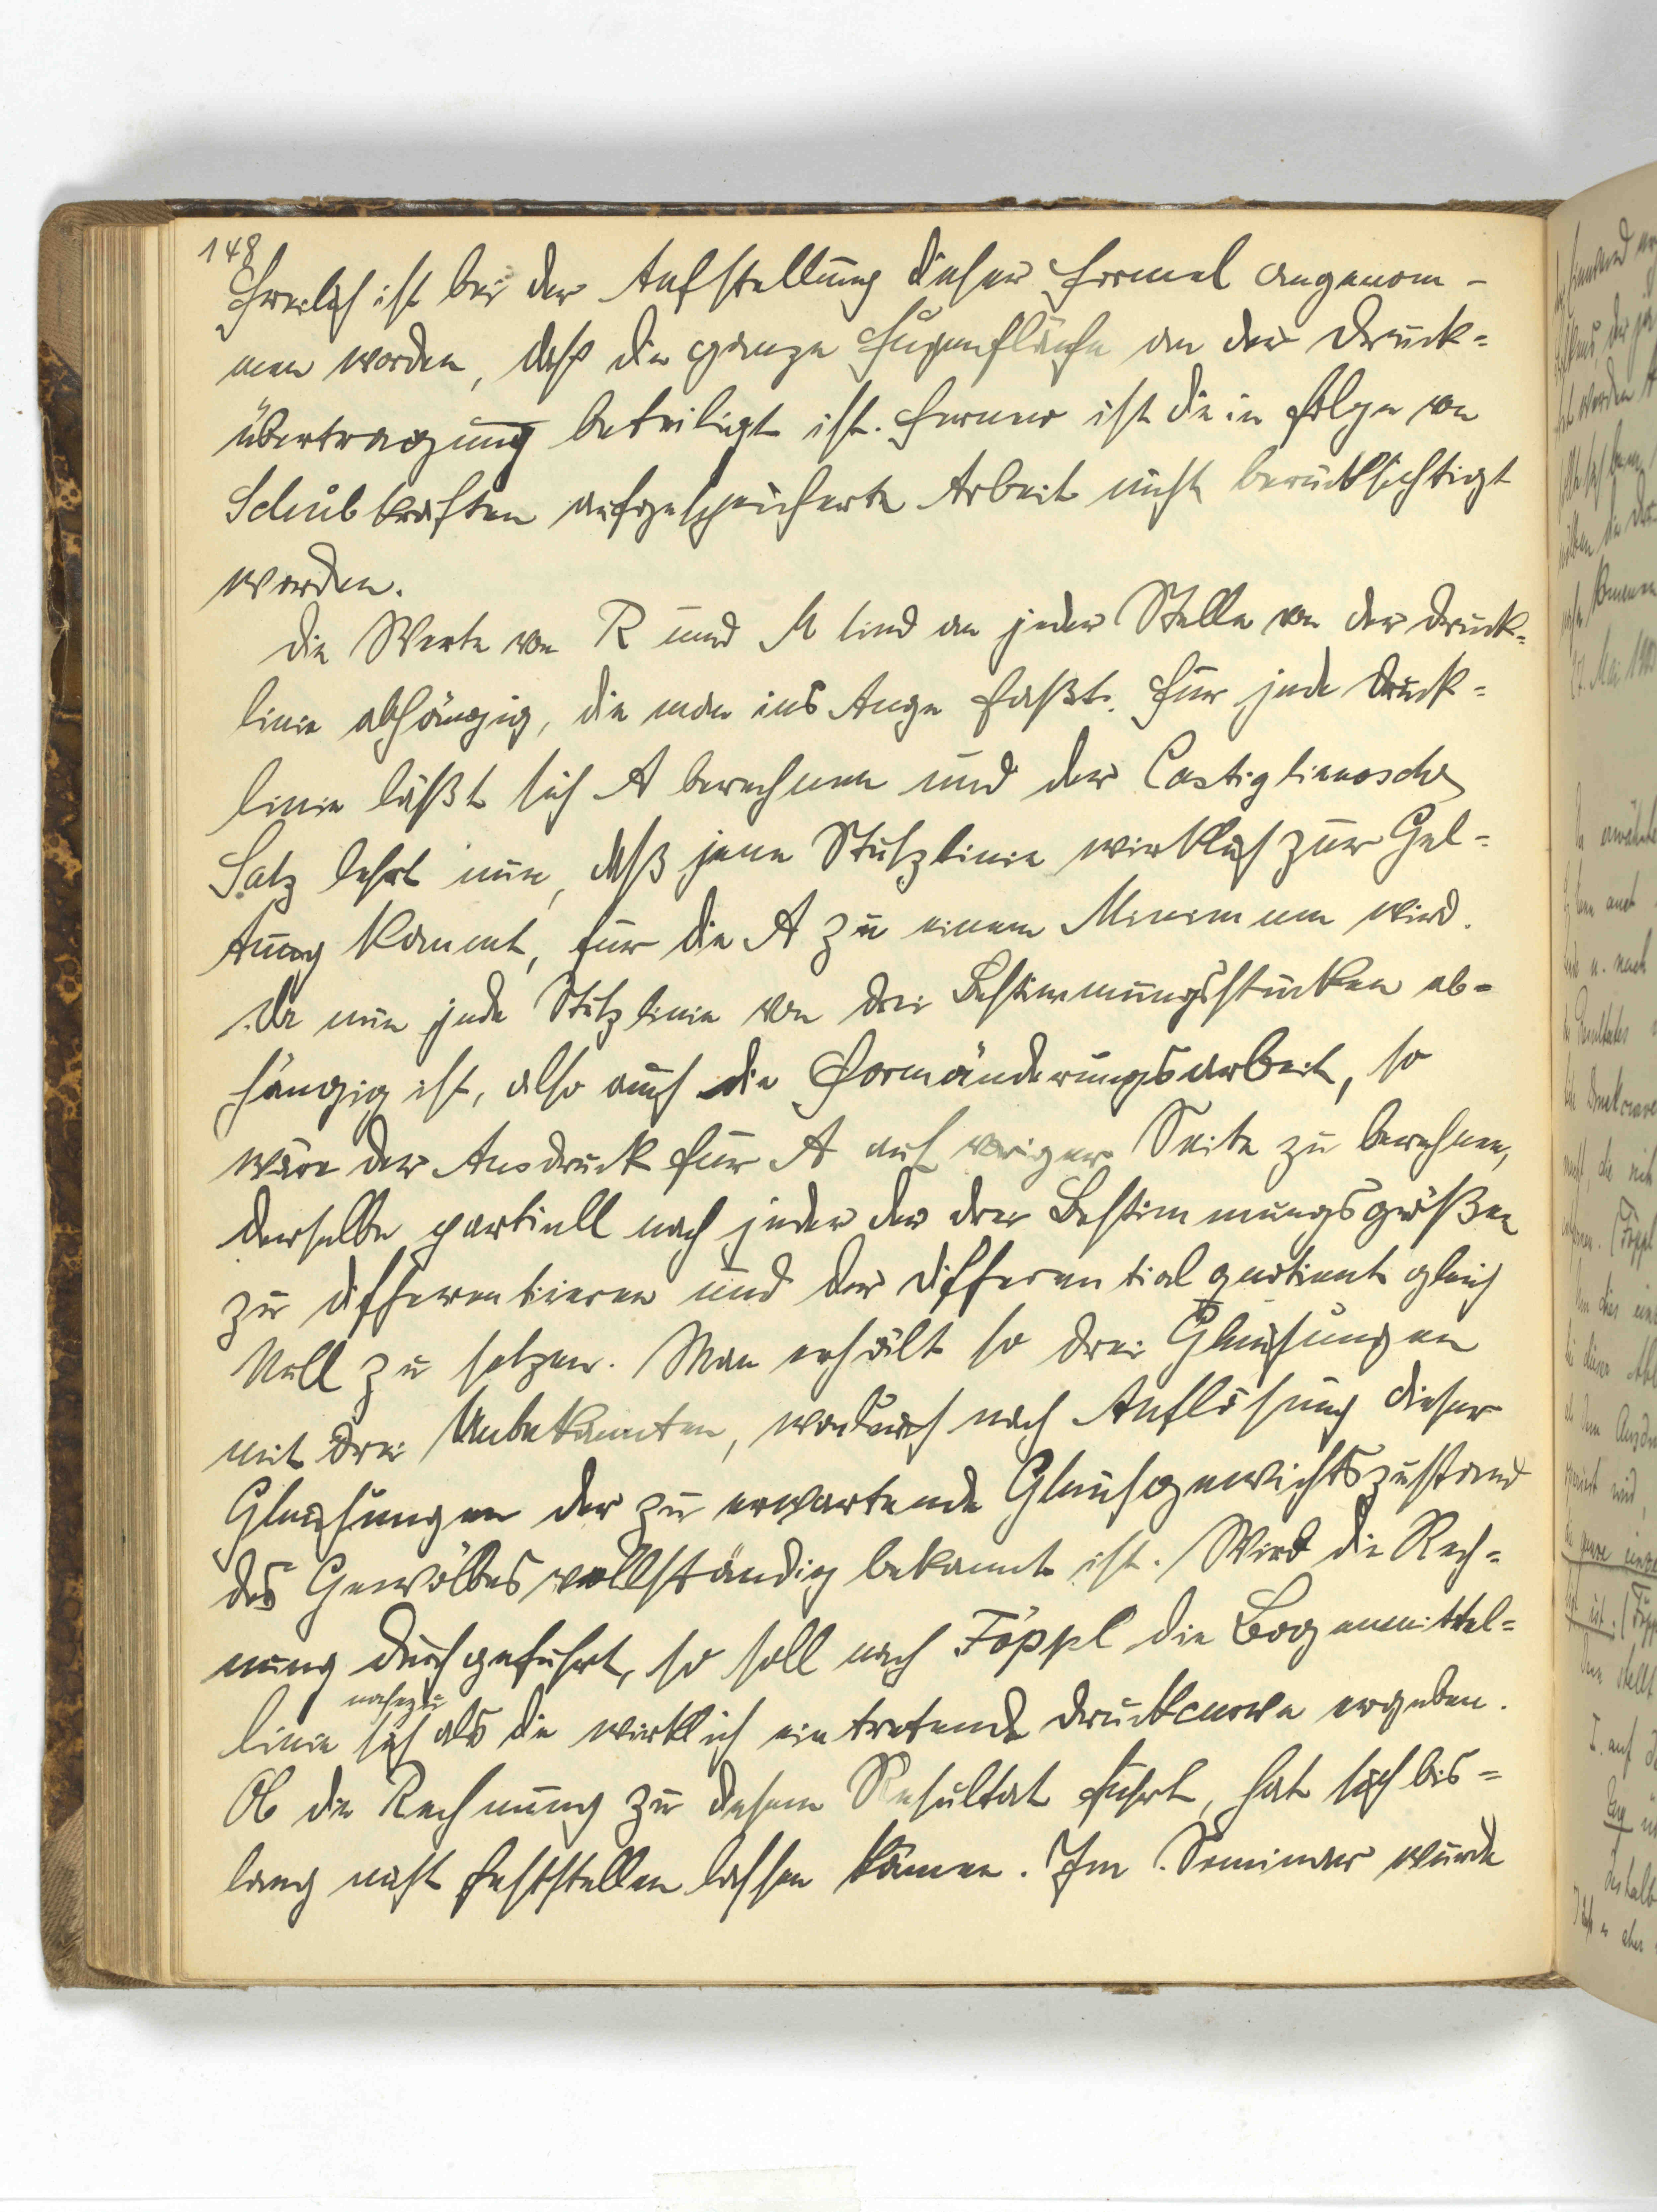 148
Freilich ist bei der Aufstellung dieser Formel angenom-
men worden, daß die ganze Fugenfläche an der Druck=
übertragung beteiligt ist. Ferner ist die in Folge von
Schubkräften aufgespeicherte Arbeit nicht berücksichtigt
worden.
Die Werte von R und M sind an jeder Stelle von der Druck=
linie abhängig, die man ins Auge faßt. Für jede Druck=
linie läßt sich A berechnen und der Castiglianosche
Satz lehrt nun, daß jene Stützlinie wirklich zur Gel=
tung kommt, für die A zu einem Minimum wird.
Da nun jede Stützlinie von drei Bestimmungsstücken ab=
hängig ist, also auch die Formänderungsarbeit, so
wäre der Ausdruck für A auf voriger Seite zu berechnen,
derselbe partiell nach jeder der drei Bestimmungsgrößen
zu differentiieren und der Differentialquotient gleich
Null zu setzen. Man erhält so drei Gleichungen
mit drei Unbekannten, wodurch nach Auflösung dieser
Gleichungen der zu erwartende Gleichgewichtszustand
des Gewölbes vollständig bekannt ist. Wird die Rech=
nung durchgeführt, so soll nach Föppl die Bogenmittel=
nahezu
linie sich als die wirklich eintretende Druckcurve ergeben.
Ob die Rechnung zu diesem Resultat führt, hat sich bis=
lang nicht feststellen lassen können. Im Seminar wurde